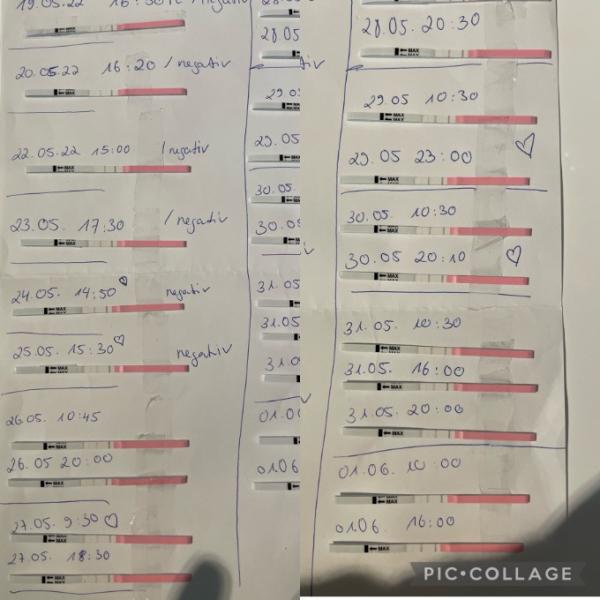 19.05.22 16:30 / negativ
20.05.22 16:20 / negativ
MAX
22.05.22 15:00 / negativ
MAX
23.05. 17:30 / negativ
MAX
24.05. 14:50 ♡ negativ
MAX
25.05. 15:30 ♡ negativ
MAX
26.05. 10:45
MAX
26.05 20:00
MAX
27.05. 9:30 ♡
MAX
27.05. 18:30
MAX
28.05
29.05
30.05.
30.05
31.05
31.05
31.0
01.0
01.06
28.05. 20:30
MAX
29.05 10:30
MAX
29.05 23:00 ♡
MAX
30.05. 10:30
MAX
30.05 20:10 ♡
MAX
31.05. 10:30
MAX
31.05. 16:00
MAX
31.05. 20:00
MAX
01.06. 10:00
MAX
01.06 16:00
MAX
PIC•COLLAGE